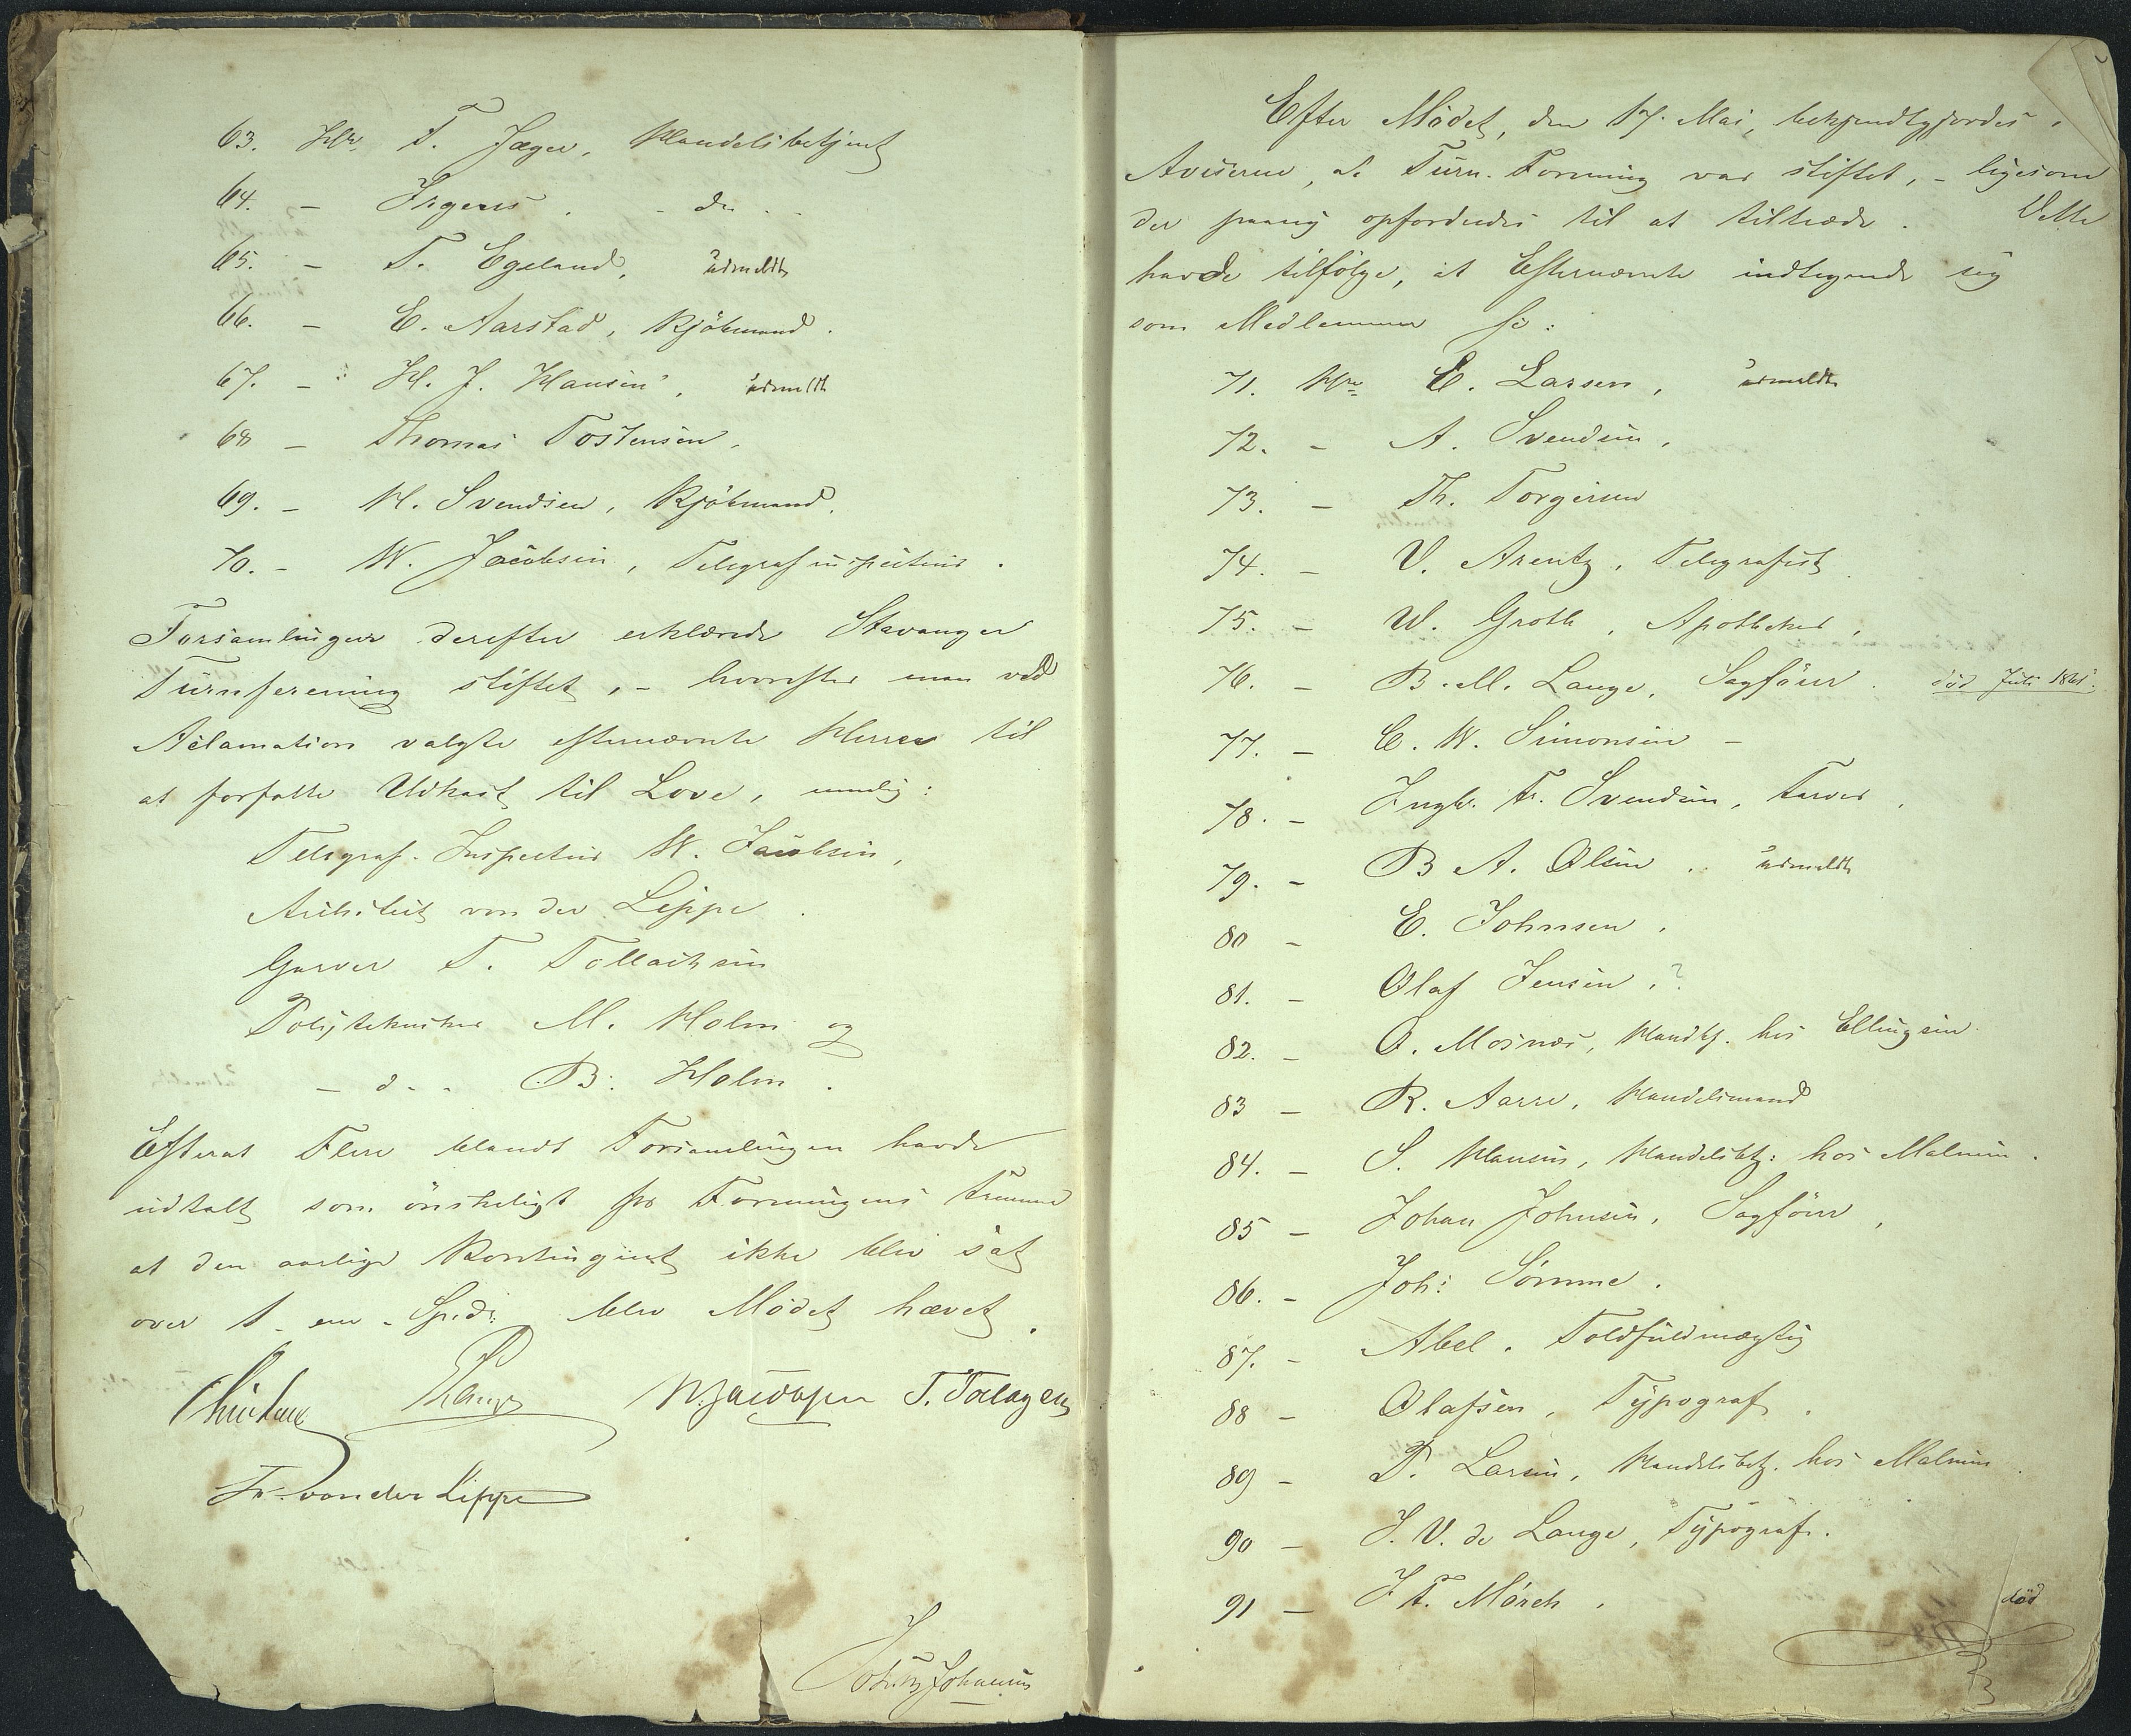 63. Hr. T. Jæger, Handelsbetjent
64. - Ingers, - do -
65. - T. Egeland, udmeldt
66. - E. Aarstad, Kjöbmand.
67. - H. J. Hansen, udmeldt
68 - Thomas Tostensen,
69. - H. Svendsen, Kjöbmand.
70. - W. Jacobsen, Telegrafinspecteur.
Forsamlingen derefter erklærede Stavanger
Turnforening stiftet, - hvorefter man ved
Aclamation valgte efternævnte Herrer til
at forfatte Udkast til Love, nemlig:
Telegraf-Inspecteur W. Jacobsen,
Architect von der Lippe.
Garver T. Tollachsen
Polytekniker M. Holm og
- do - B. Holm.
Efterat Flere blandt Forsamlingen havde
udtalt som önskeligt for Foreningens Fremme
at den aarlige Kontingent ikke blev sat
over 1 - en - Spd: blev Mödet hævet.
W. Jacobsen T. Tollagsen
Fr. von der Lippe
Johnsen
Efter Mödet, den 17. Mai, bekjendtgjordes i
Aviserne, at Turn-Forening var stiftet, - ligesom
der paany opfordredes til at tiltræde. Dette
havde tilfölge, at Efternævnte indtegnede sig
som Medlemmer se:
71. Hr. E. Larsen, udmeldt
72. - A. Svendsen,
73. - Th. Torgersen
74. - V. Arentz, Telegrafist.
75. - W. Groth, Apotheker,
76. - B. M. Lange, Sagförer. död Juli 1861.
77. - C. W. Simonsen -
78. - Ingb. Fr. Svendsen, Farver,
79. - B A. Olsen .. udmeldt
80 - E. Johnsen,
81. - Olaf Jensen, ?
82. - O. Mosnæs, Handbtj. hos Ellingsen
83 - R. Aarre, Handelsmand
84. - S. Hansen, Handelsbtj: hos Malmin.
85 - Johan Johnsen, Sagförer,
86. - Joh: Sömme.
87. - Abel, Toldfuldmægtig
88 - Olafsen, Typograf.
89 - P. Larsen, Handelsbetj. hos Malmin.
90 - J. V. de Lange, Typograf.
91 - J. F. Mörch, död